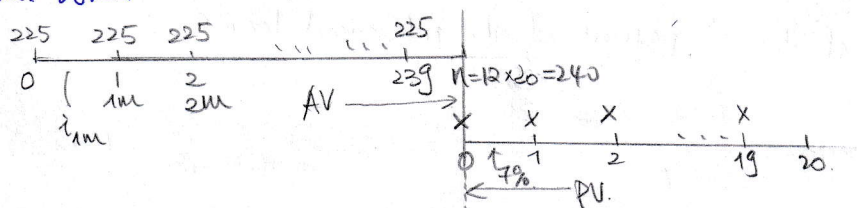 225 225 225 ... ... 225
0 1 2 239 n=12×20=240
1m 2m AV
i1m
X X X X
0 1 2 ... 19 20.
7%
PV.